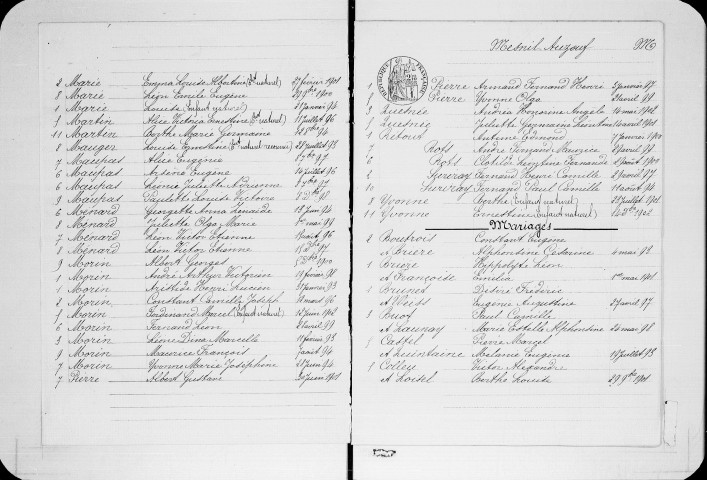 2 Marie Emma Louise Albertine (Et naturel) 27 février 1901
8 Marie Léon Emile Eugène 29 9bre 1900
1 Marie Louise (Enfant naturel) 21 janvier 94
Martin Alice Victoria Ernestine (Et naturel) 17 juillet 96
11 Martin Berthe Marie Germaine 98
8 Mauger Louise Ernestine (Et naturel reconnu) 28 juillet 93
7 Maupas Alice Eugénie 97
6 Maupas Arsène Eugène 14 juillet 96
6 Maupas Léonie Juliette Adrienne 97
9 Maupas Paulette Louise Victoire
6 Ménard Georgette Anna Zénaïde 18 juin 94
8 Ménard Juliette Olga Marie 1er mai 98
7 Ménard Léon Victor Etienne 1 août 96
Ménard Léon Victor Etienne
9 Morin Albert Georges 1900
1 Morin André Arthur Victorin 10 février 98
1 Morin Aristide Henri Lucien 3 février 93
2 Morin Constant Camille Joseph 16 mars 96
5 Morin Ferdinand Marcel (Enfant naturel) 15 juin 1902
6 Morin Fernand Léon 21 avril 99
3 Morin Léone Dina Marcelle 11 février 93
9 Morin Maurice François août 94
7 Morin Yvonne Marie Joséphine 28 juin 94
7 Pierre Albert Gustave 20 juin 1901
Mesnil Auzouf
REPUBLIQUE FRANÇAISE
1 Pierre Armand Fernand Henri 3 janvier 97
Pierre Yvonne Olga 21 avril 97
Quesnée Andréa Honorine Angèle 14 mai 1901
Quesnée Juliette Germaine 14 août 1901
1 Retout Antime Edmond 7 janvier 1900
7 Rots André Fernand Maurice 8 avril 99
6 Rots Clotilde Léontine Fernande 2 août 1900
2 Surcray Fernand Henri Camille 8 février 97
10 Surcray Fernand Paul Camille 11 août 94
8 Yvonne Berthe (Enfant naturel) 28 juillet 1901
11 Yvonne Ernestine (Enfant naturel) 14 1902
Mariages
2 Boutrois Constant Eugène
et Brière Alphonsine Césarine 4 mai 93
1 Brière Hippolyte Léon
et Françoise Emilia 1er mai 1901
1 Brunet Désiré Frédéric
Eugénie Augustine 27 avril 97
3 Buot Paul Camille
et Launay Marie Estelle Alphonsine 24 mai 98
8 Castel Pierre Marcel
et Quintaine Mélanie Eugénie 19 juillet 93
9 Colley Victor Alexandre
et Loisel Berthe Louise 29 9bre 1901